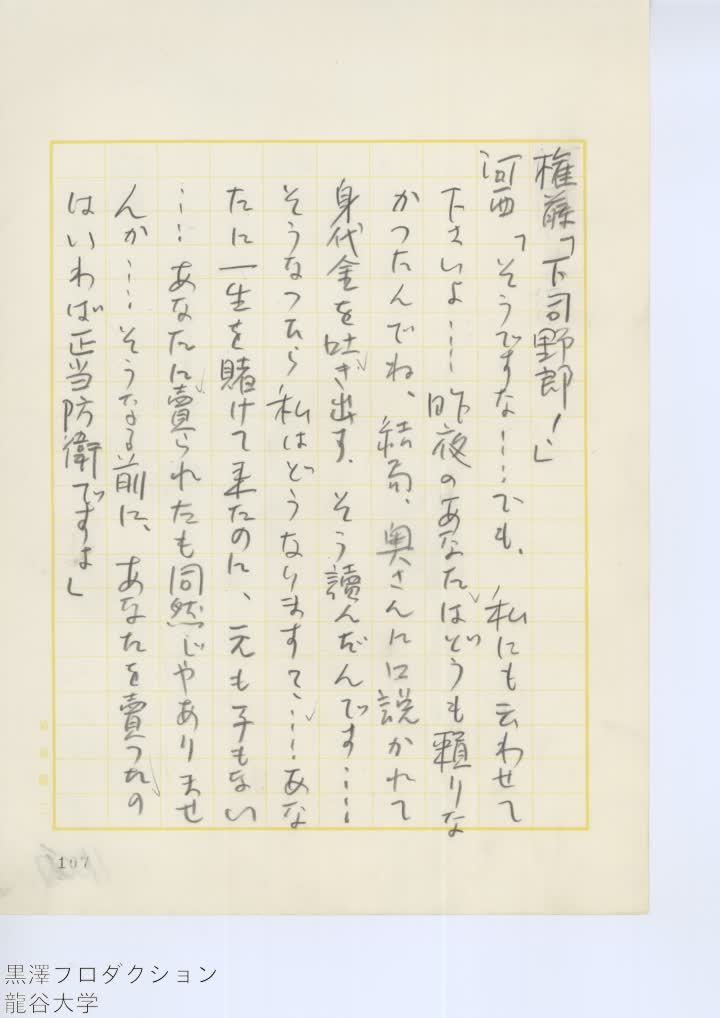 権藤「下司野郎！」
河西「そうですな……でも、私にも云わせて
下さいよ……昨夜のあなたはどうも頼りな
かつたんでね、結局、奥さんに口説かれて
身代金を吐き出す、そう讀んだんです……
そうなつたら私はどうなりますて、……あな
たに一生を賭けて来たのに、元も子もない
……あなたに賣られたも同然じやありませ
んか……そうなる前に、あなたを賣つたの
はいわば正当防衛ですよ」
107
黒澤プロダクション
龍谷大学